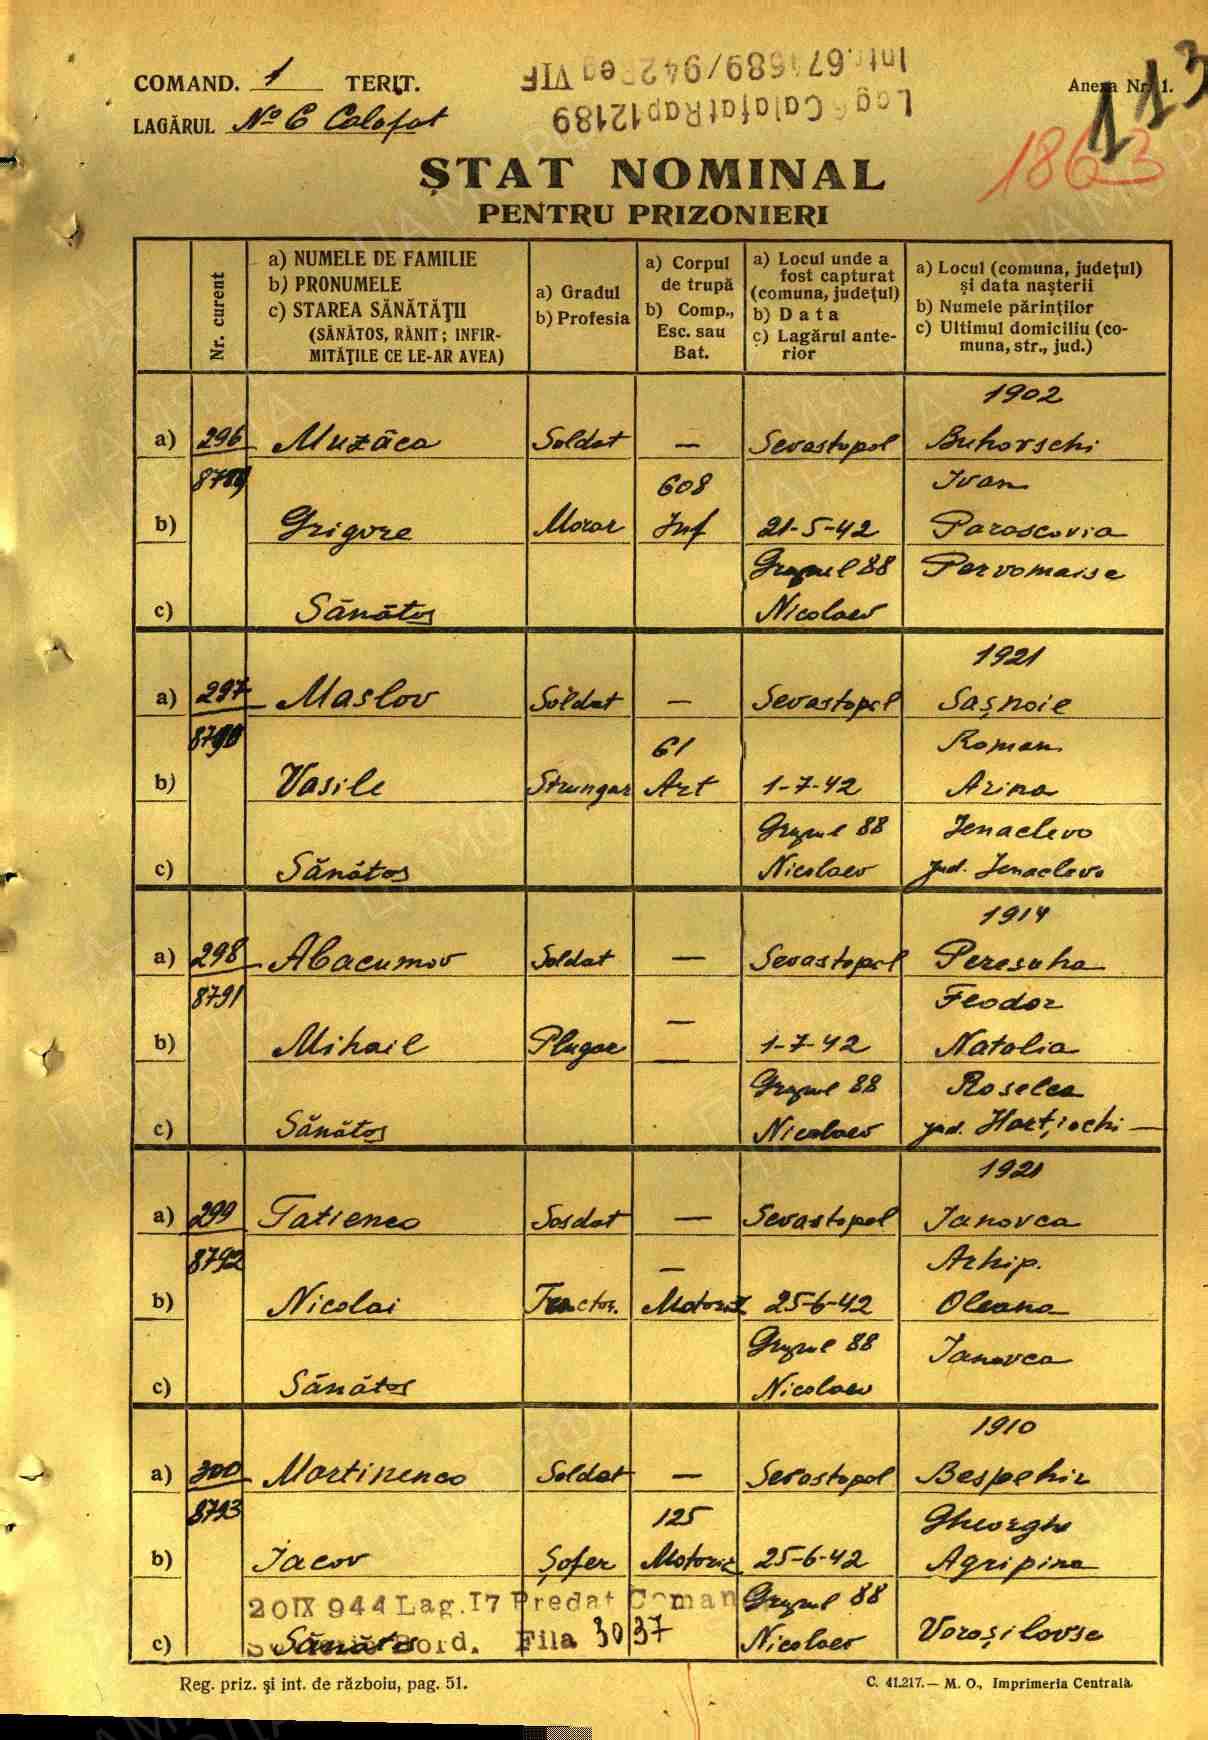 COMAND. 1 TERIT.
LAGĂRUL No 6 Calafat
Intr. 671689/942 Reg VIF
Lag 6 Calafat Rap 12189
Anexa Nr. 1.
113
1863
ȘTAT NOMINAL
PENTRU PRIZONIERI
Nr. curent
a) NUMELE DE FAMILIE
b) PRONUMELE
c) STAREA SĂNĂTĂŢII
(SĂNĂTOS, RĂNIT; INFIR-
MITĂŢILE CE LE-AR AVEA)
a) Gradul
b) Profesia
a) Corpul
de trupă
b) Comp.,
Esc. sau
Bat.
a) Locul unde a
fost capturat
(comuna, judeţul)
b) Data
c) Lagărul ante-
rior
a) Locul (comuna, judeţul)
şi data naşterii
b) Numele părinţilor
c) Ultimul domiciliu (co-
muna, str., jud.)
1902
a) 296 Muzâca Soldat — Sevastopol Buhovschi
8789 608 Ivan
b) Grigore Morar Inf 21-5-42 Parascovia
Grupul 88 Pervomaisc
c) Sănătos Nicolaev
1921
a) 297 Maslov Soldat — Sevastopol Sașnoie
8790 61 Roman
b) Vasile Strungar Art 1-7-42 Arina
Grupul 88 Ienaclevo
c) Sănătos Nicolaev jud. Ienaclevo
1914
a) 298 Abacumov Soldat — Sevastopol Peresuha
8791 — Feodor
b) Mihail Plugar — 1-7-42 Natalia
Grupul 88 Roselca
c) Sănătos Nicolaev jud. Harţischi —
1921
a) 299 Tatienco Sosdat — Sevastopol Ianovca
8792 — Arhip.
b) Nicolai Tractor. Motoriz 25-6-42 Oleana
Grupul 88 Ianovca
c) Sănătos Nicolaev
1910
a) 300 Martinenco Soldat — Sevastopol Bespehiz
8793 125 Gheorghe
b) Iacov Șofer Motoriz 25-6-42 Agripina
20 IX 944 Lag. 17 Predat Coman Grupul 88
c) Sănătos Bord. Fila 3037 Nicolaev Voroșilovsc
Reg. priz. şi int. de războiu, pag. 51.
C. 41.217.— M. O., Imprimeria Centrală.